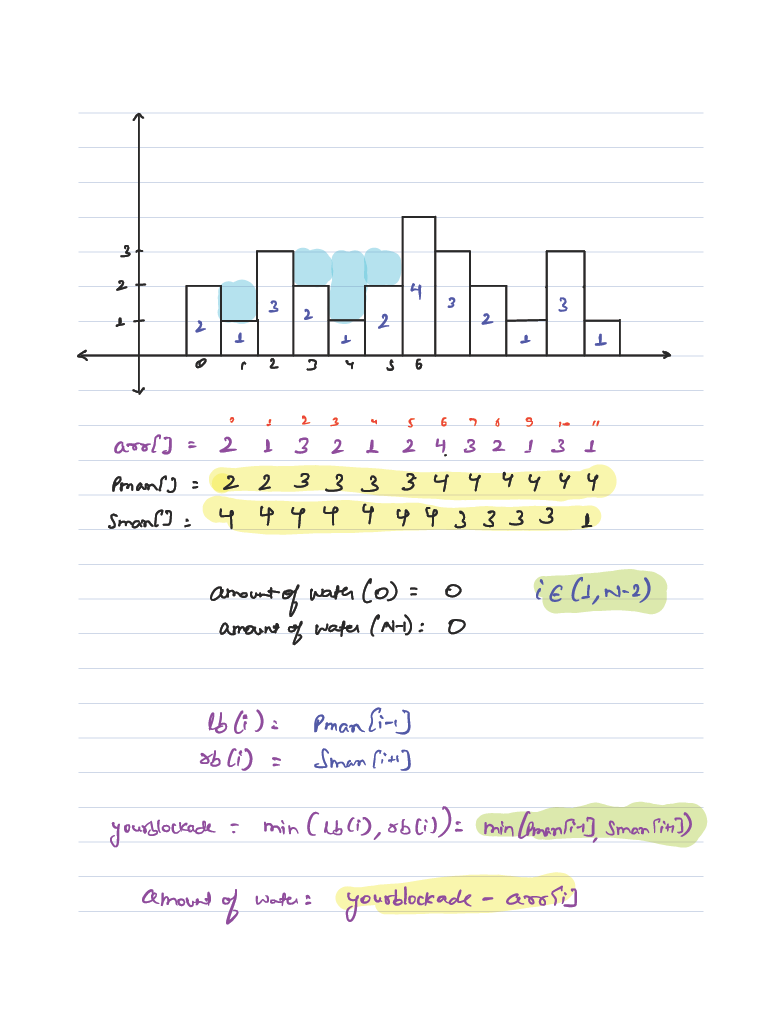 3
2
1
2 1 3 2 1 2 4 3 2 1 3 1
0 1 2 3 4 5 6
0 1 2 3 4 5 6 7 8 9 10 11
arr[] = 2 1 3 2 1 2 4 3 2 1 3 1
Pmax[] = 2 2 3 3 3 3 4 4 4 4 4 4
Smax[] = 4 4 4 4 4 4 4 3 3 3 3 1
amount of water (0) = 0 i ∈ (1, N-2)
amount of water (N-1) : 0
lb(i) = Pmax[i-1]
rb(i) = Smax[i+1]
yourblockade = min (lb(i), rb(i)) = min(Pmax[i-1], Smax[i+1])
Amount of water = yourblockade - arr[i]